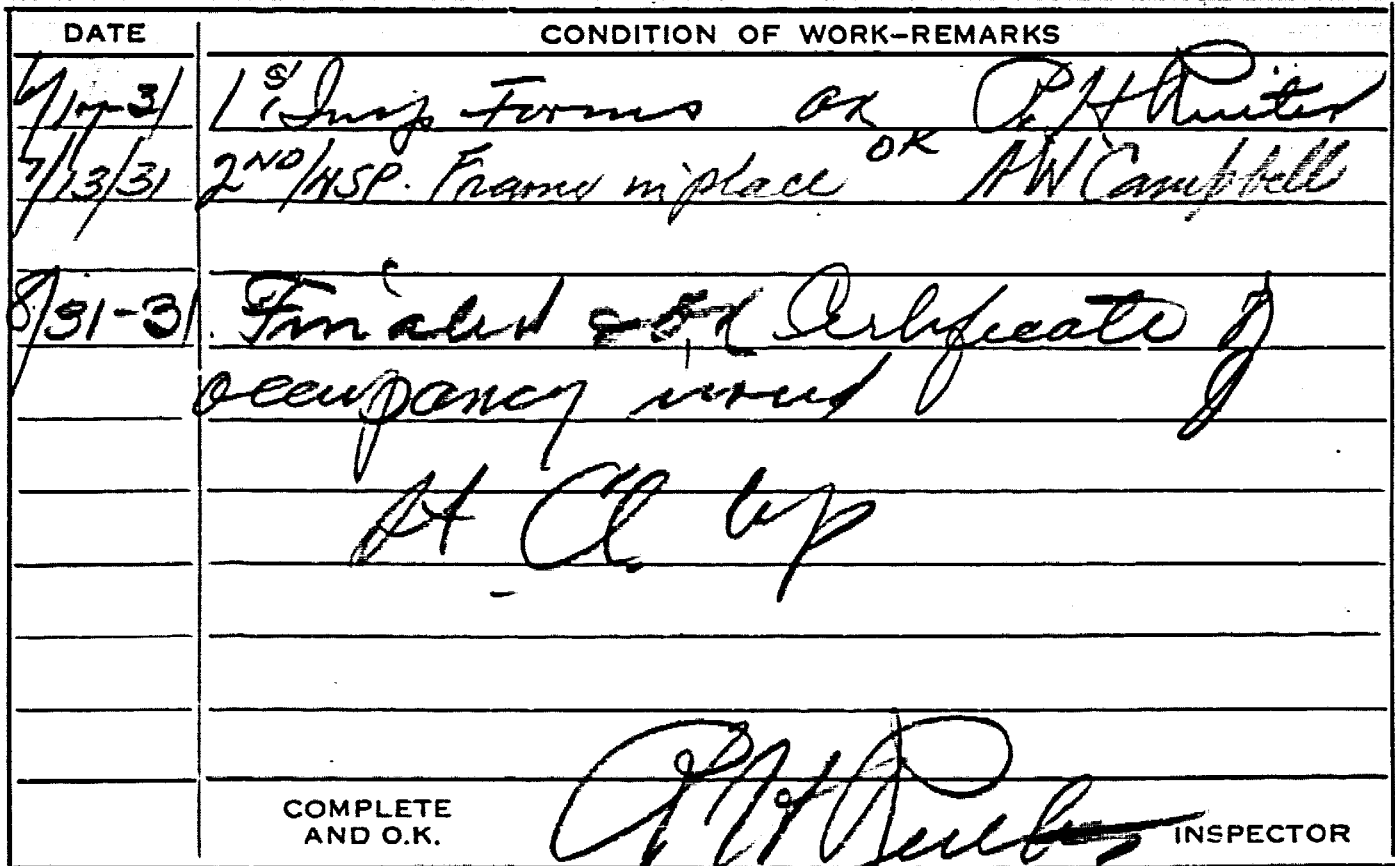 DATE CONDITION OF WORK-REMARKS
1st Insp Forms OK P. H. Ruiter
7/13/31 2ND INSP. Frame in place OK AW Campbell
8/31-31 Finaled Certificate of
occupancy issued
up
COMPLETE
AND O.K. INSPECTOR